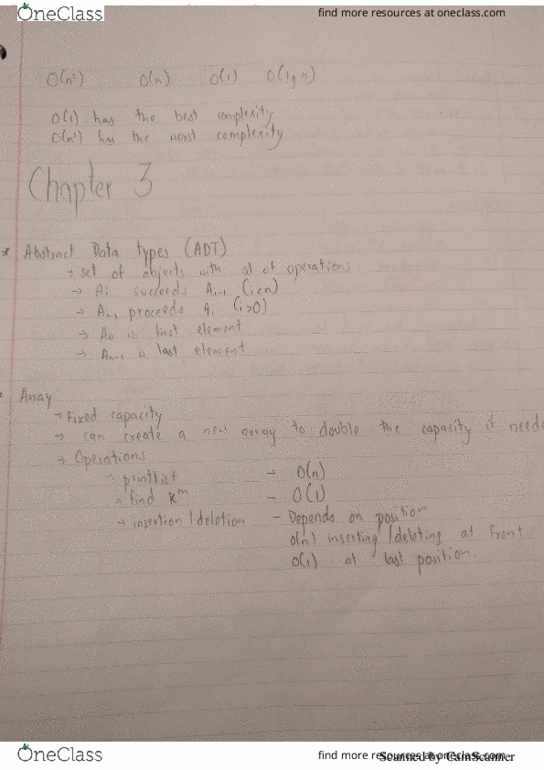 OneClass
find more resources at oneclass.com
O(n²) O(n) O(1) O(lg n)
O(1) has the best complexity
O(n²) has the worst complexity
Chapter 3
* Abstract Data types (ADT)
→ set of objects with set of operations
→ Ai succeeds Ai-1 (i<n)
→ Ai-1 proceeds Ai (i>0)
→ A0 is first element
→ An-1 is last element
Array
→ Fixed capacity
→ can create a new array to double the capacity if need
→ Operations
→ printlist - O(n)
→ find Kth - O(1)
→ insertion/deletion - Depends on position
O(n) inserting/deleting at front
O(1) at last position.
OneClass
find more resources at oneclass.com
Scanned by CamScanner